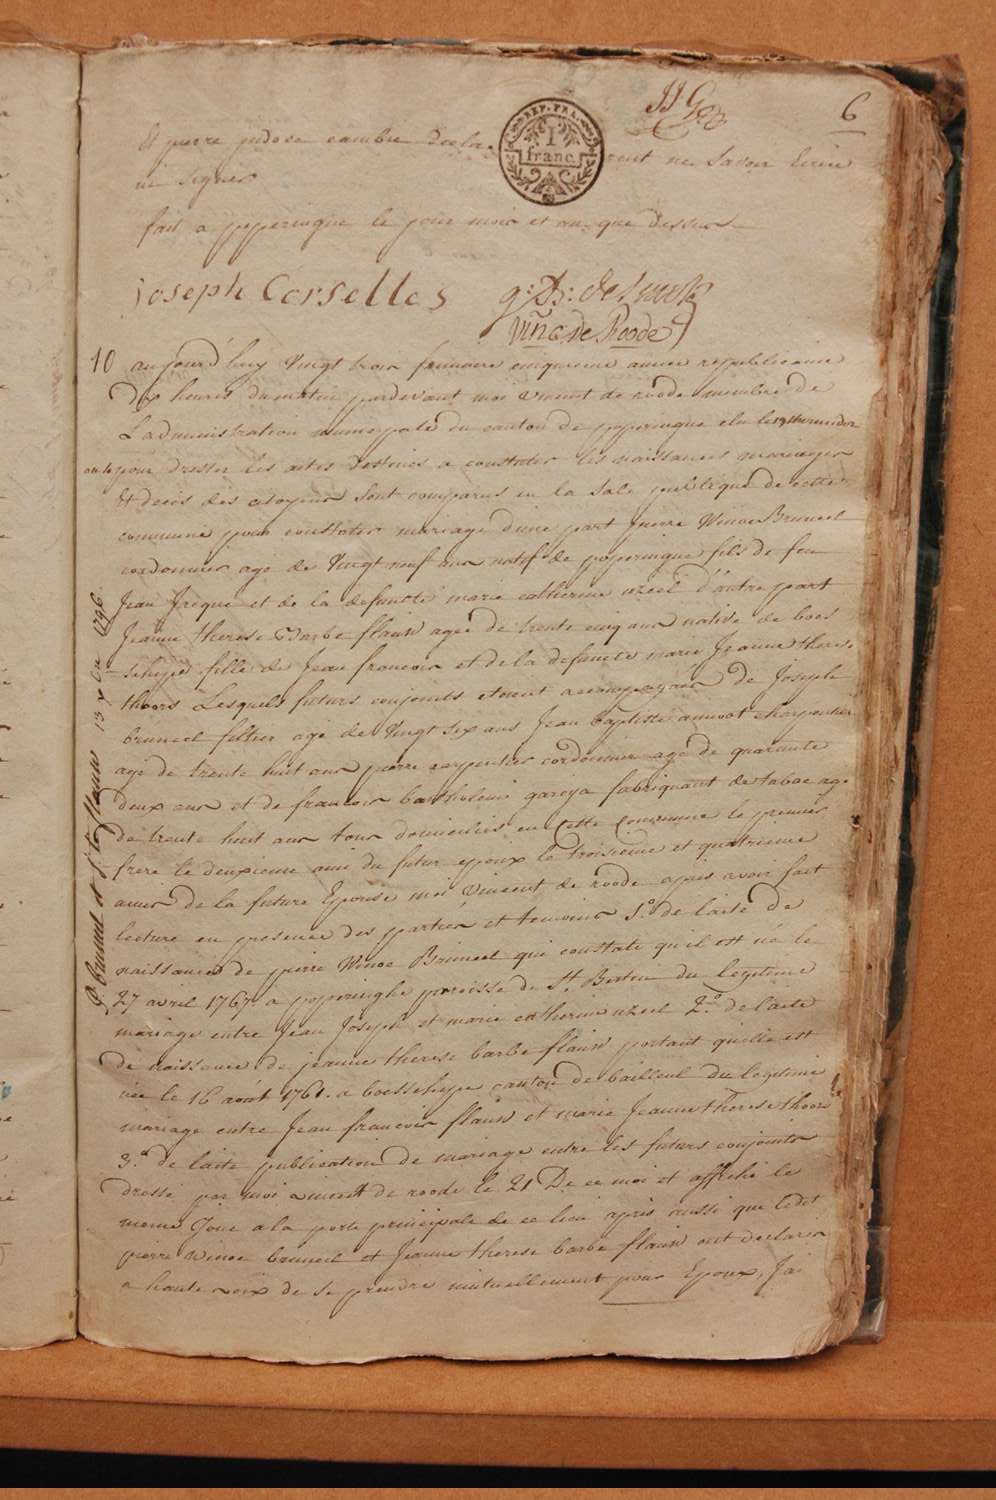 6
REP. FRA.
1
franc
Et pierre judoce cambie decla rent ne savoir Ecrire
ni signer
fait a poperingue le jour mois et an que dessus
joseph Corselles
Vinc. de Roode
10 aujourd'huy Vingt trois frimaire cinquieme année republicaine
dix heures du matin pardevant moi vincent de roode membre de
L'administration municipale du canton de poperingue elu le 19 thermidor
an 4 pour dresser les actes destinés a constater les naissances mariages
et decés des citoyens sont comparus en la sale publique de cette
commune pour constater mariage d'une part pierre Winoc Bruneel
cordonnier agé de Vingt neuf ans natif de poperingue fils de feu
Jean Jacque et de la defuncte marie catherine uzeel d'autre part
Jeanne therese Barbe flauw agée de trente cinq ans native de boes
=schepe fille de Jean francois et de la defuncte marie Jeanne theres
thoors Lesquels futurs conjoints etoient accompagnés de Joseph
bruneel filtier agé de Vingt six ans Jean baptiste annoot charpentier
agé de trente huit ans pierre carpentier cordonnier agé de quarante
deux ans et de francois bartholemi gareyn fabriquant de tabac agé
de trente huit ans tous domiciliés en cette Commune le premier
frere le deuxieme ami du futur epoux le troisieme et quatrieme
amis de la future Epouse moi Vincent de roode apres avoir fait
lecture en presence des parties et temoins 1.º de l'acte de
naissance de pierre Winoc Bruneel qui constate qu'il est né le
27 avril 1767. a poperinghe paroisse de St. Bertin du legitime
mariage entre Jean Joseph et marie catherine uzeel 2.º de l'acte
de naissance de jeanne therese barbe flauw portant qu'elle est
née le 16 août 1761. a boesschepe canton de bailleul du legitime
mariage entre Jean francois flauw et marie Jeanne therese thoors
3.º de l'acte publication de mariage entre les futurs conjoints
dressé par moi vincent de roode le 21 De ce mois et affiché le
meme Jour a la porte principale de ce lieu apris aussi que ledit
pierre Winoc bruneel et Jeanne therese barbe flauw ont declarés
a haute voix de se prendre mutuellement pour Epoux, j'ai
P. bruneel et J. th. flauw 13 xbre 1796.